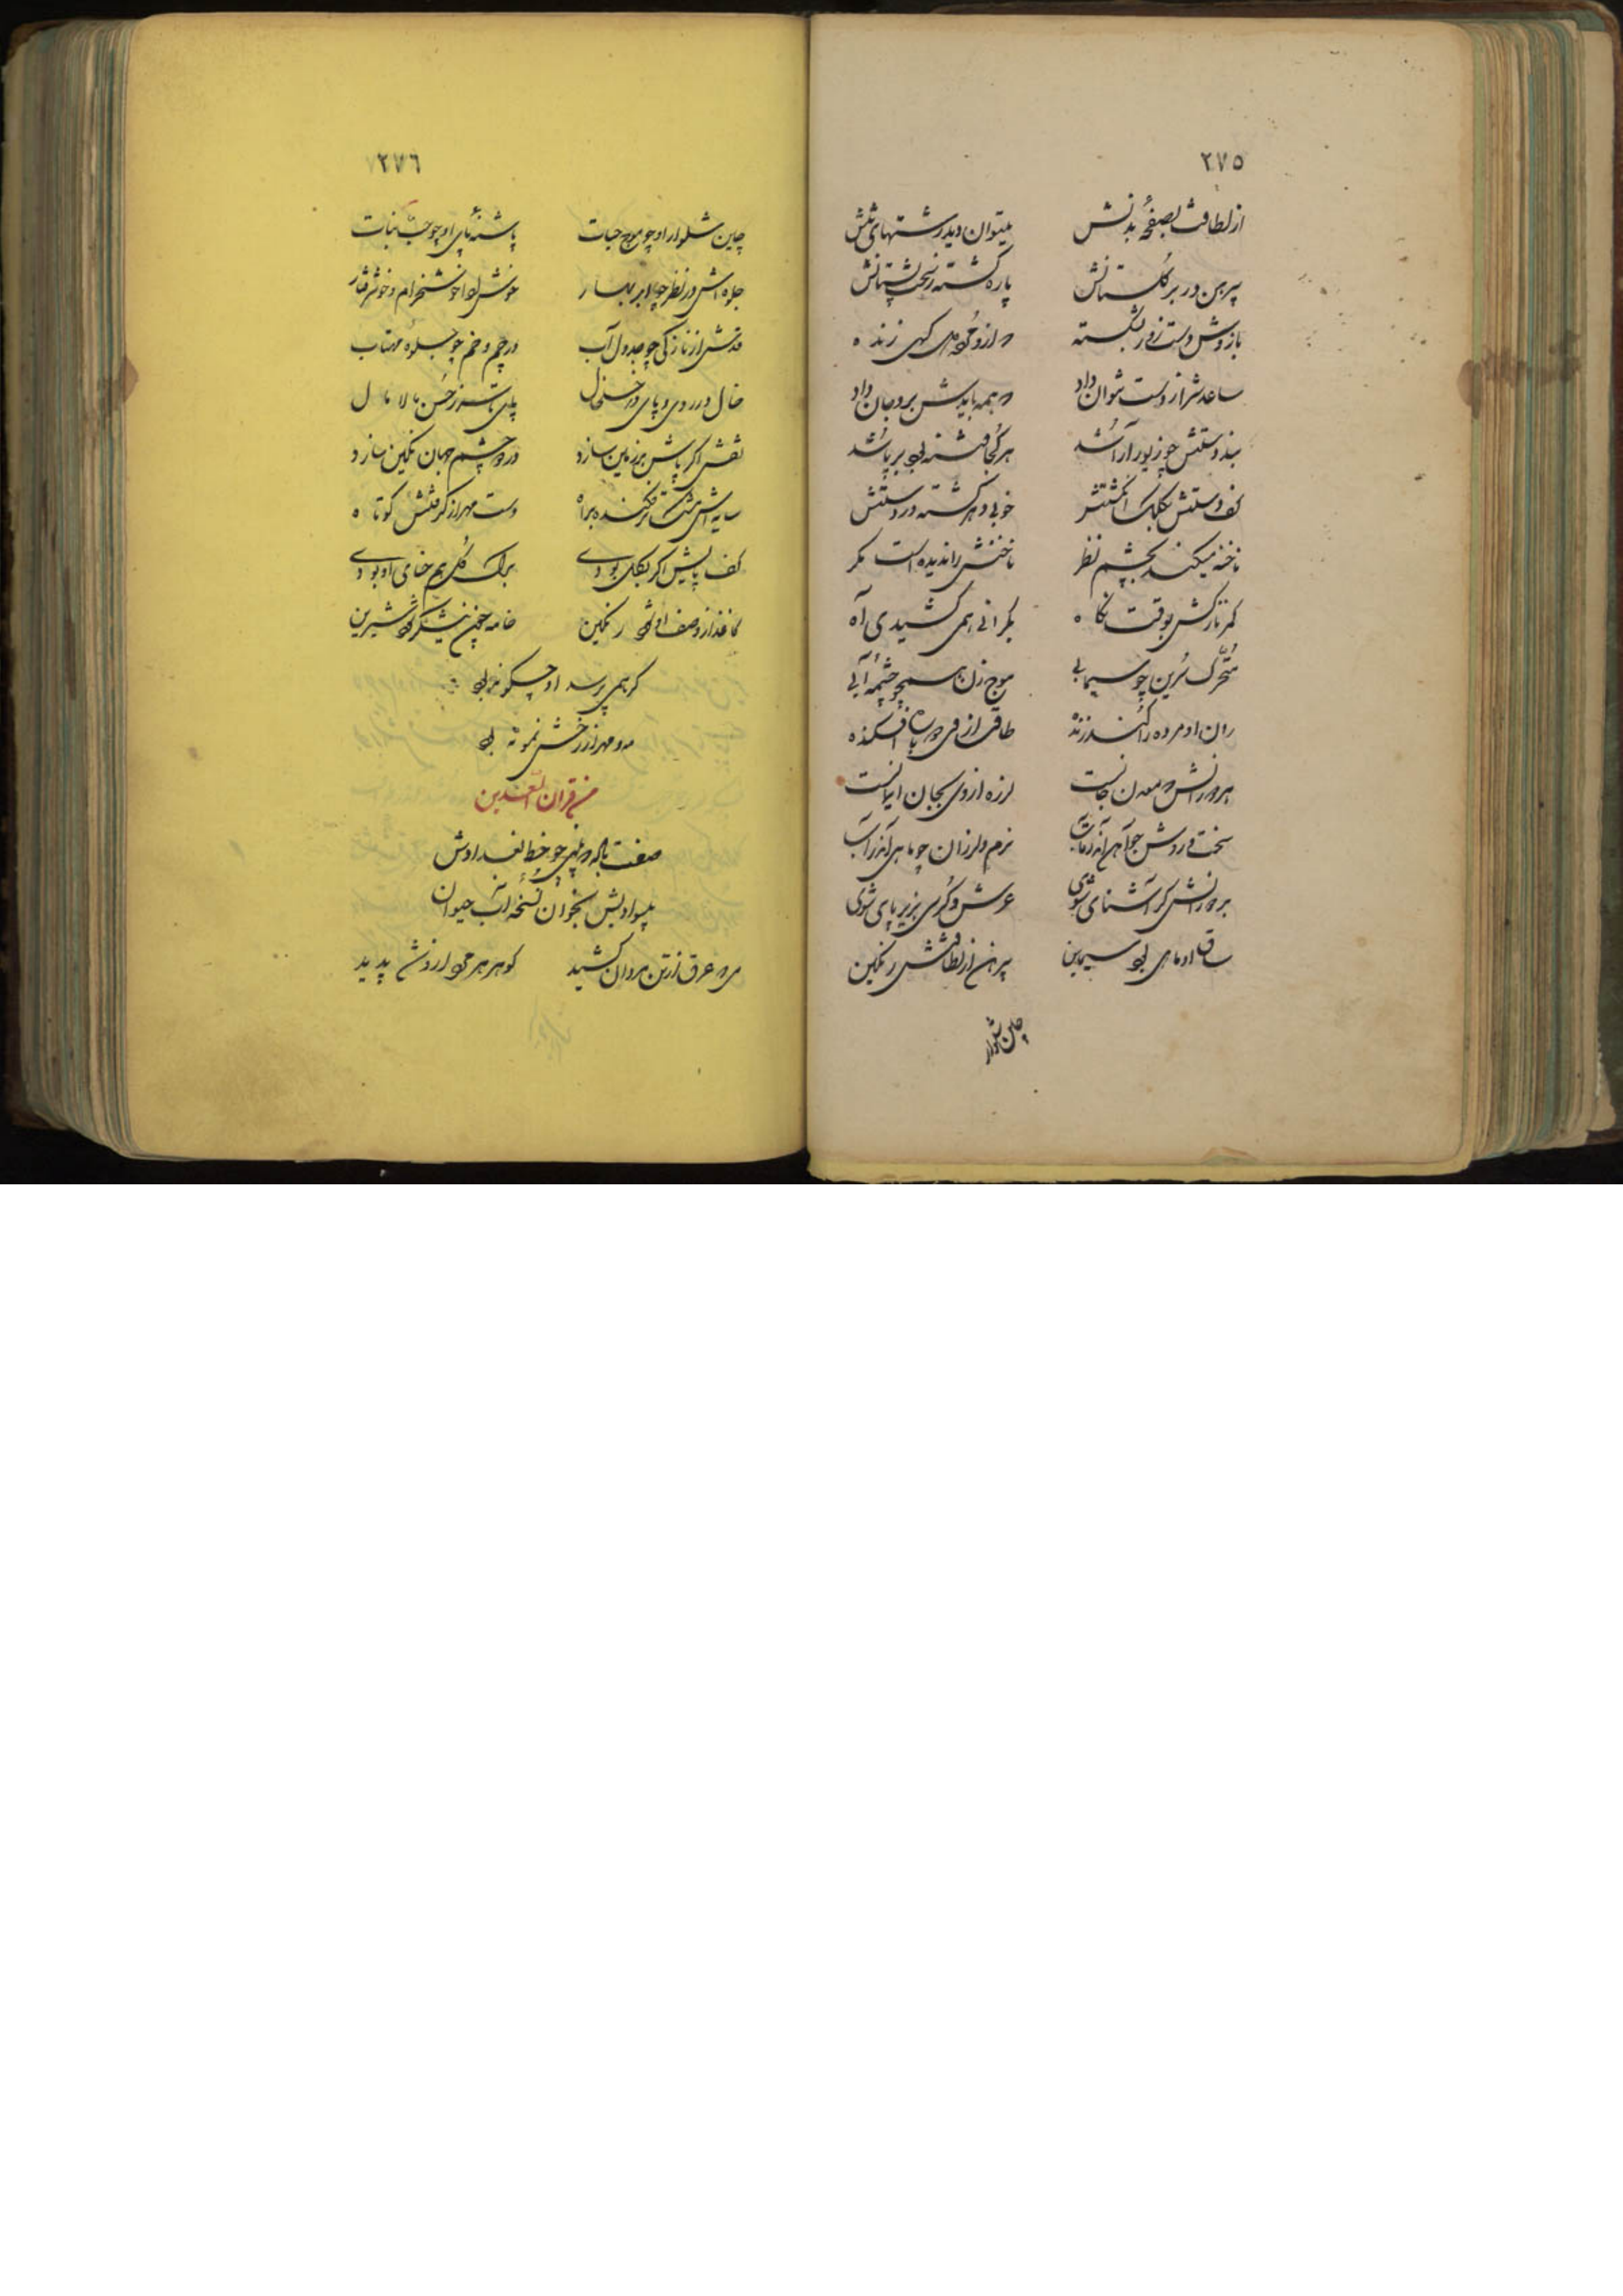 ۲۷۵
از لطافت بصفحهٔ بدنش میتوان دید رشتهای تنش
پیرهن در بر گلستانش پاره گشته ز سختی پستانش
بازوش دست زور بشکسته
ساعدش را ز دست نتوان داد همه بایدش برو جان داد
بند دستش چو زیور آرا شد هر کجا فتنه بود برپا شد
کف دستش بکلک انگشتش خوبی دهر گشته در دستش
ناخنه میکند بچشم نظر ناخنش را ندیده است مگر
کمر نازکش بوقت نگاه بگرانی همی کشیدی آه
متحرک سرین چو سیمابی موج زن همچو چشمهٔ آبی
ران او مرده را کند زنده طاقت از
معدن جانست لرزه از وی بجان
سخت و روشن چو نرم و لرزان چو ماهی اندر آب
آشنای شوی عرش و کرسی بزیر پای شوی
ساق او ماهی بود سیمین پیرهن از لطافتش رنگین
چین شلوار
۲۷۶
چین شلوار او چو موج حیات پاشنهٔ پای او چو حب نبات
جلوه اش در نظر چو ابر بهار خوش ادا خوشخرام و خوشرفتار
قدش از نازکی چو جدول آب در چم و خم چو جلوهٔ مهتاب
خال در روی و پای در خلخال پای تا سر ز حسن مالامال
نقش اگر پاش بر زمین سازد در دو چشم جهان نگین سازد
سایه اش مشک تر فکنده براه دست مهر از گرفتنش کوتاه
کف پایش اگر بگل بودی برگ گل هم حنای او بودی
کاغذ از وصف او شود رنگین خامه همچون نیشکر شود شیرین
گر همی پرسد او چگونه بود
مه و مهر از رخش نمونه بود
من قران السعدین
صفت خط بغدادش
بسوادش بخوان نسخهٔ آب حیوان
عرق از تن مردان کشید گوهر هر مرد از و شد پدید